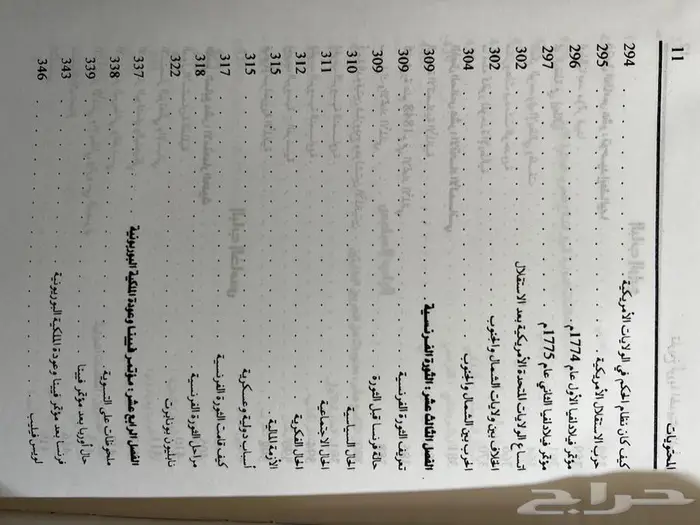 المحتويات 11
كيف كان نظام الحكم في الولايات الأمريكية 294
حرب الاستقلال الأمريكية 295
مؤتمر فيلادلفيا الأول عام 1774م 296
مؤتمر فيلادلفيا الثاني عام 1775م 297
اتساع الولايات المتحدة الأمريكية بعد الاستقلال 302
الخلاف بين ولايات الشمال والجنوب 302
الحرب بين الشمال والجنوب 304
الفصل الثالث عشر: الثورة الفرنسية 309
تعريف الثورة الفرنسية 309
حالة فرنسا قبل الثورة 309
الحال السياسية 310
الحال الاجتماعية 311
الحال الفكرية 312
الأزمة المالية 315
أسباب دولية وعسكرية 315
كيف قامت الثورة الفرنسية 317
مراحل الثورة الفرنسية 318
نابليون بونابرت 322
الفصل الرابع عشر: مؤتمر فيينا وعودة الملكية البوربونية 337
ملحوظات على التسوية 338
حال أوربا بعد مؤتمر فيينا 339
فرنسا بعد مؤتمر فيينا وعودة الملكية البوربونية 343
لويس فيليب 346
حراج